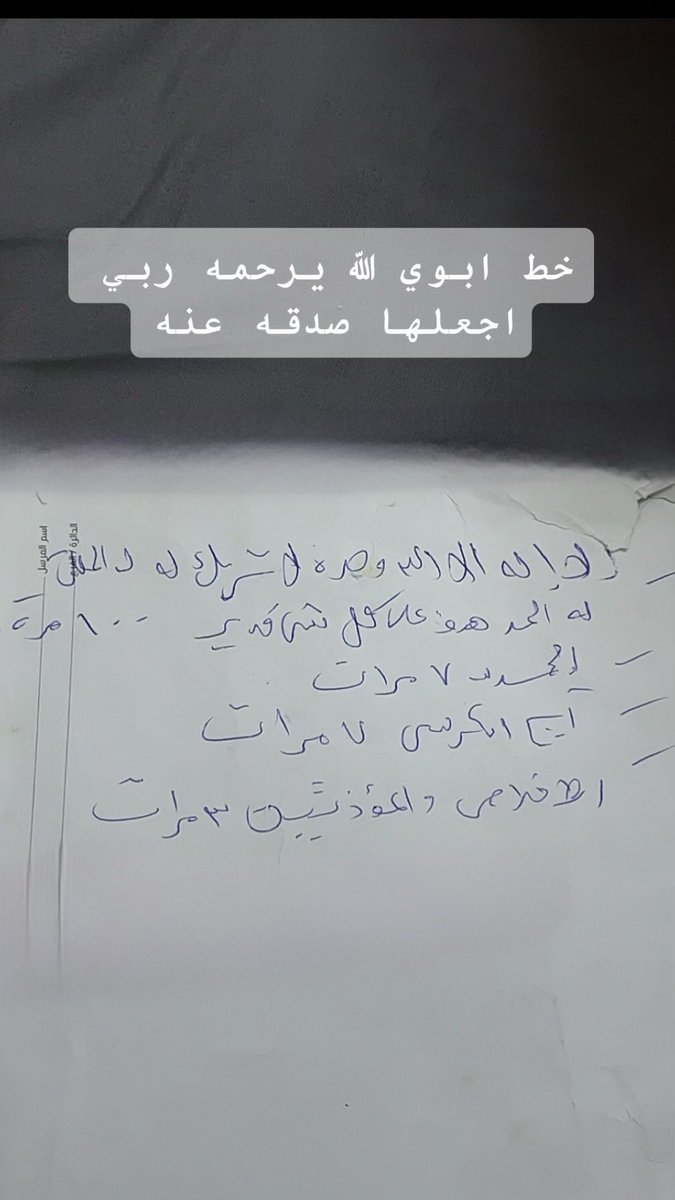 خط ابوي الله يرحمه ربي
اجعلها صدقه عنه
لا إله الا الله وحده لا شريك له له الملك
له الحمد هو على كل شي قدير ١٠٠ مرة
الحمد ٧ مرات
آية الكرسي ٧ مرات
الاخلاص والمعوذتين ٣ مرات
اسم المرسل